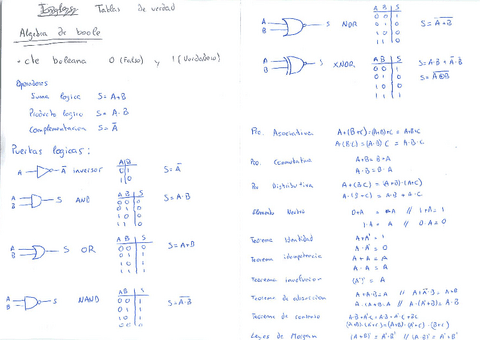 Tablas de verdad
Algebra de boole
- cte boleana 0 (Falso) y 1 (Verdadero)
Operadores
Suma logica S=A+B
Producto logico S=A·B
Complementacion S=A̅
Puertas logicas:
A Ā inversor
A
0 1
1 0
S=A̅
A
B
S AND
A B S
0 0 0
0 1 0
1 0 0
1 1 1
S=A·B
A
B
S OR
A B S
0 0 0
0 1 1
1 0 1
1 1 1
S=A+B
A
B
S NAND
A B S
0 0 1
0 1 1
1 0 1
1 1 0
S=A̅·̅B̅
A
B
S NOR
A B S
0 0 1
0 1 0
1 0 0
1 1 0
S=A̅+̅B̅
A
B
S XNOR
A B S
0 0 1
0 1 0
1 0 0
1 1 1
Pro. Asociativa A+(B+C)=(A+B)+C=A+B+C
A(B·C)=(A·B)C=A·B·C
Pro. Conmutativa A+B=B+A
A·B=B·A
Pro Distributiva A+(B·C)=(A+B)·(A+C)
A·(B+C)=A·B+A·C
Neutro 0+A = A // 1+A=1
1·A = A // 0·A=0
Teorema Identidad A+A'=1
A·A'=0
Teorema idempotencia A+A=A
A·A=A
Teorema involucion (A')'=A
Teorema de absorcion
Teorema de consenso
Leyes de Morgan (A+B)'=A'·B' // (A·B)'=A'+B'